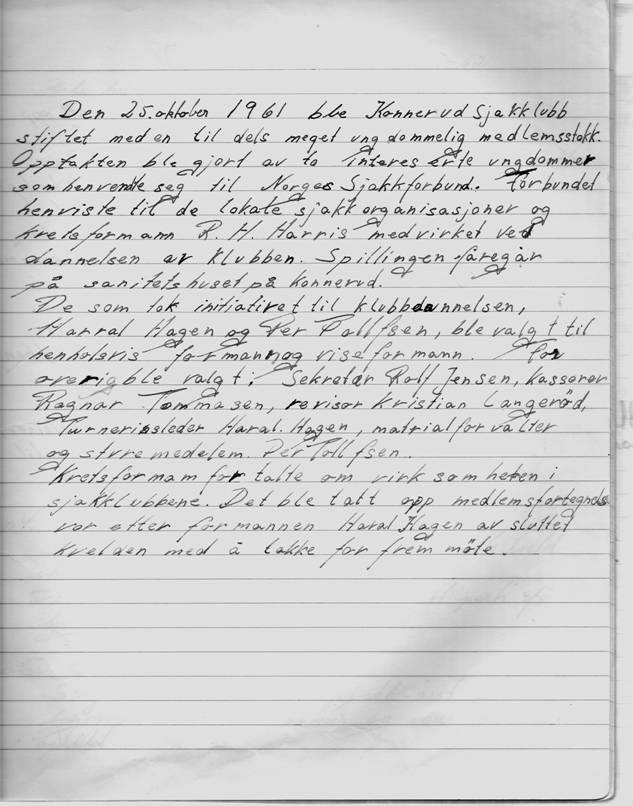 Den 25. oktober 1961 ble Konnerud Sjakklubb
stiftet med en til dels meget ungdommelig medlemsstokk.
Opptakten ble gjort av to interesserte ungdommer
som henvendte seg til Norges Sjakkforbund. Forbundet
henviste til de lokale sjakkorganisasjoner og
kretsformann R. H. Harris medvirket ved
dannelsen av klubben. Spillingen føregår
på sanitetshuset på Konnerud.
De som tok initiativet til klubbdannelsen,
Harral Hagen og Per Tollfsen, ble valgt til
henholsvis formann og viseformann. For
øverig ble valgt: Sekretær Rolf Jensen, kasserer
Ragnar Tommasen, revisor Kristian Langerød,
Turneringsleder Haral. Hagen, matrialforvalter
og styremedelem. Per Tollfsen.
Kretsformam fortalte om virksomheten i
sjakklubbene. Det ble tatt opp medlemsfortegnels
vor etter formannen Haral Hagen av sluttet
kvelden med å takke for frem møte.